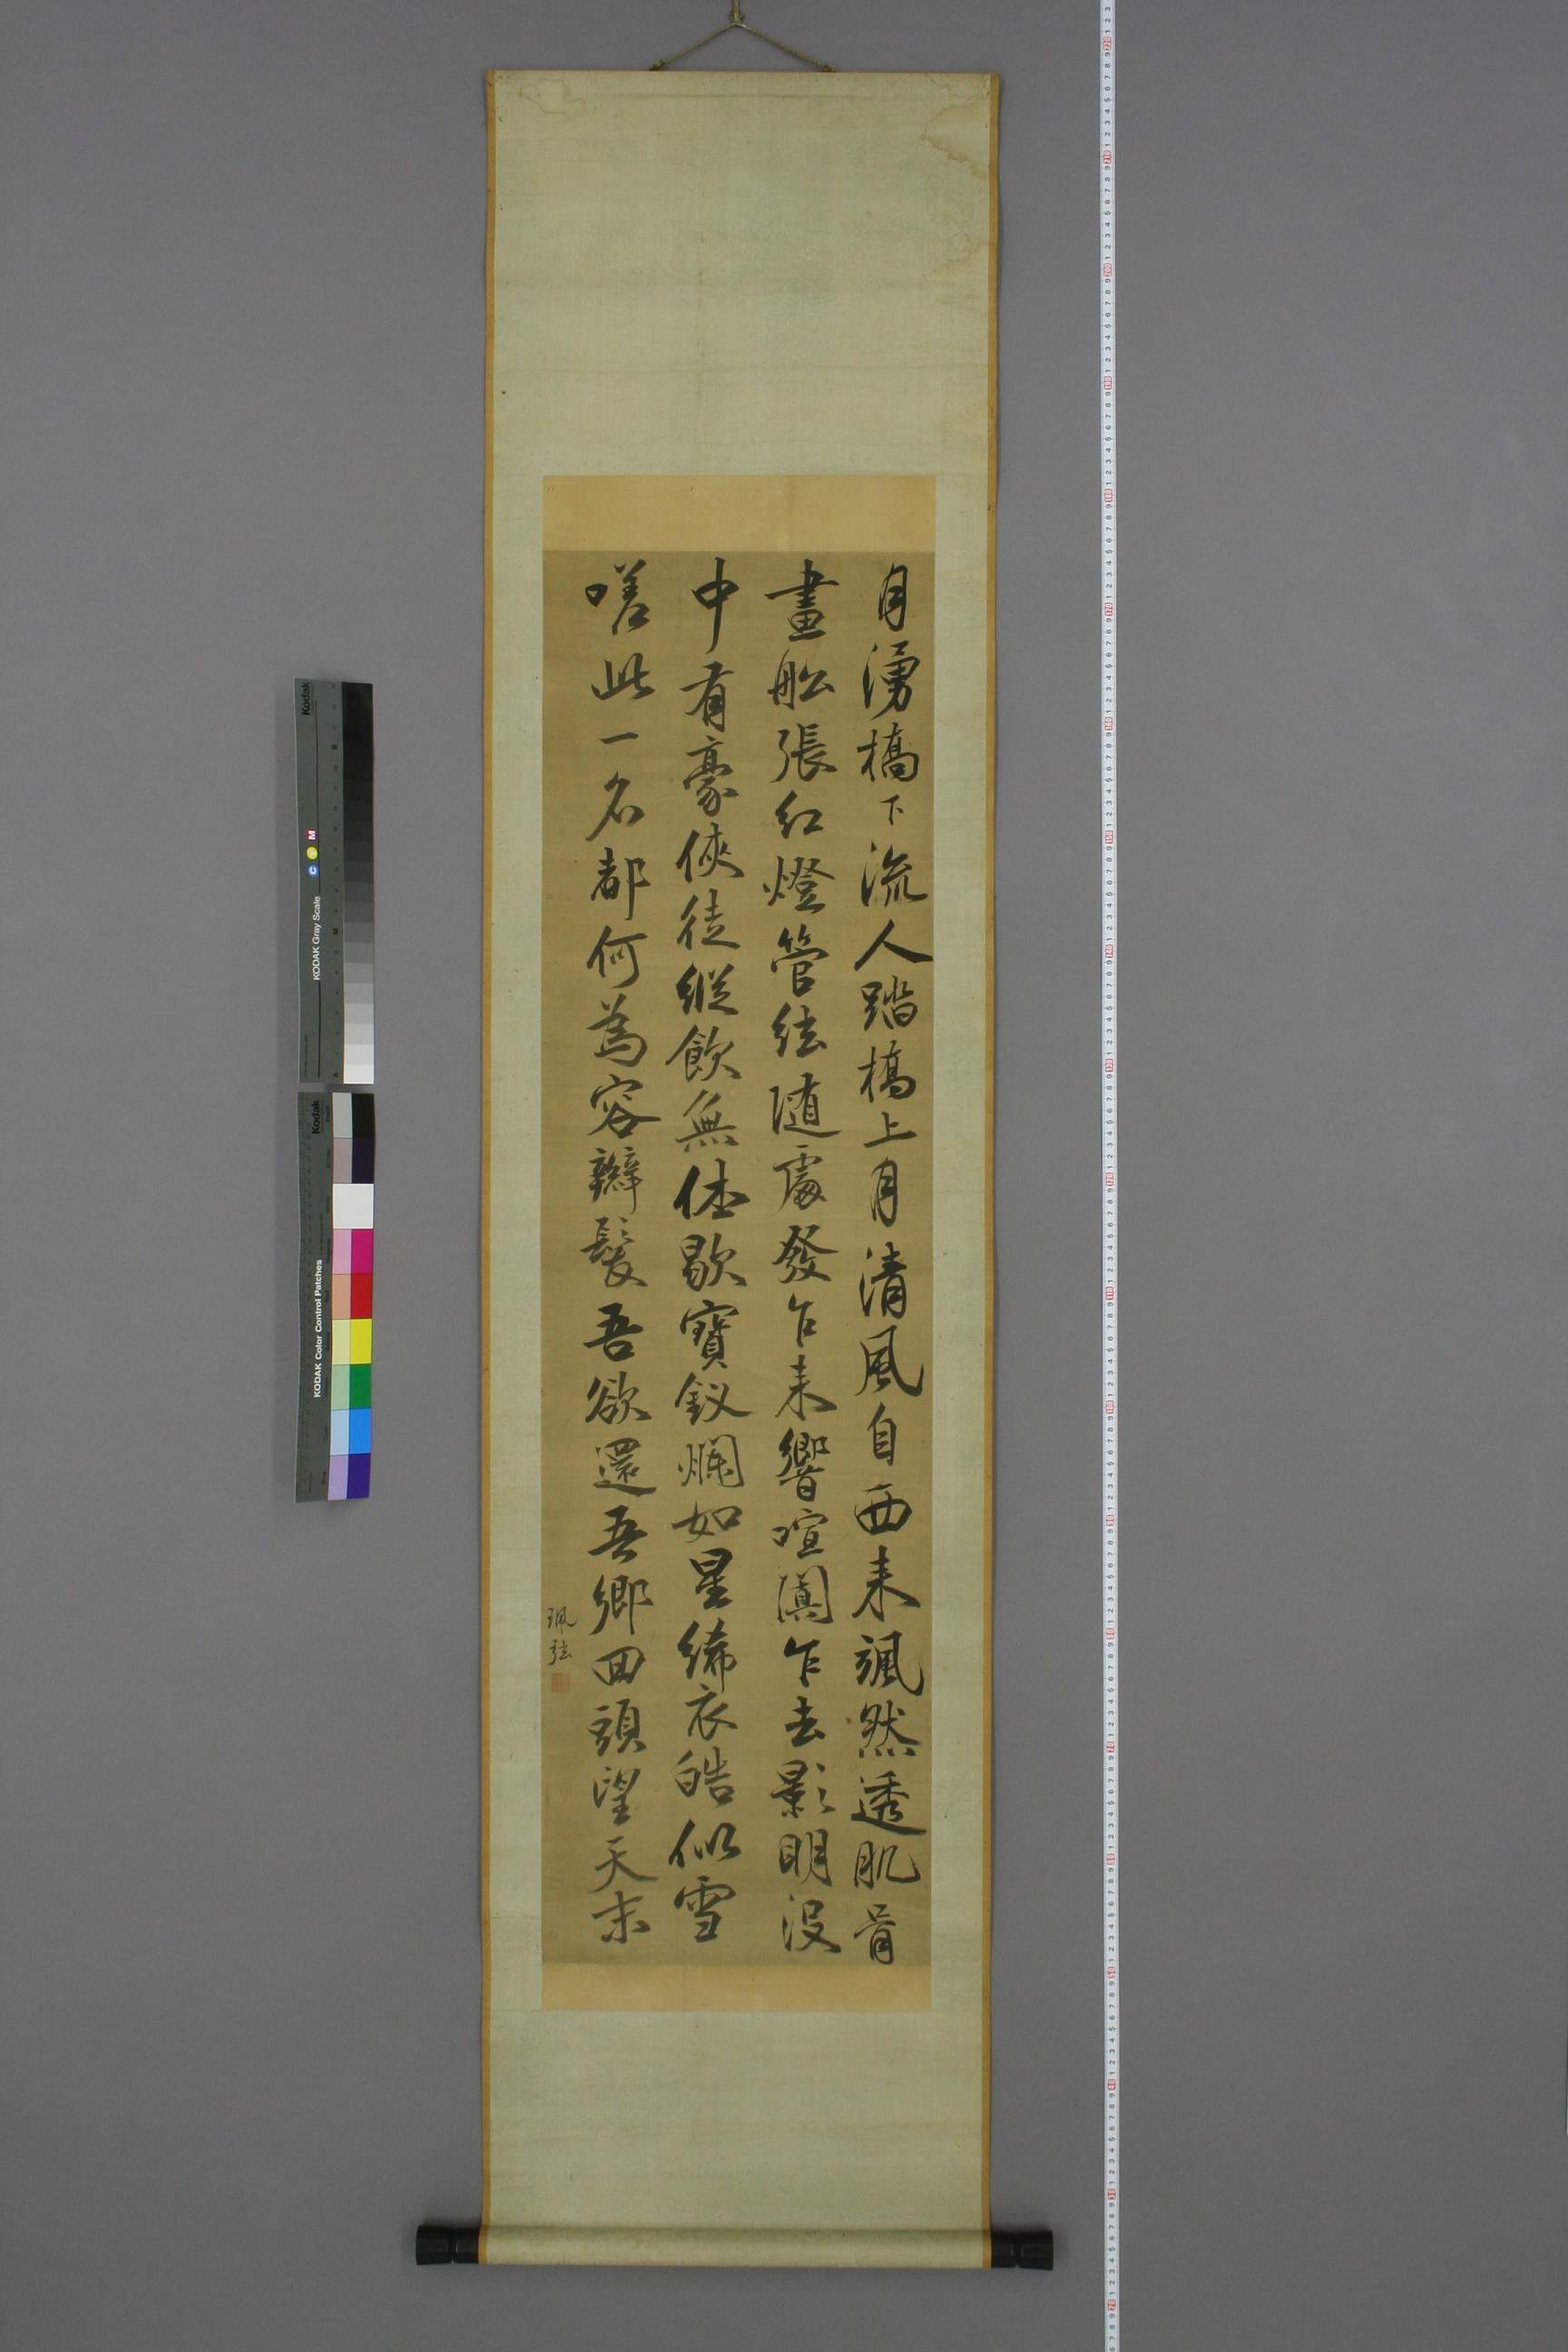 月湧橋下流人踏橋上月清風自西来颯然透肌骨
畫舩張紅燈管絃随處發乍来響喧闐乍去影明没
中有豪俠徒縱飲無休歇寶釵爛如星絺衣皓似雪
嗟此一名都何為容辮髮吾欲還吾鄉回頭望天末
珮弦
Kodak
KODAK Gray Scale
C Y M
Kodak
KODAK Color Control Patches